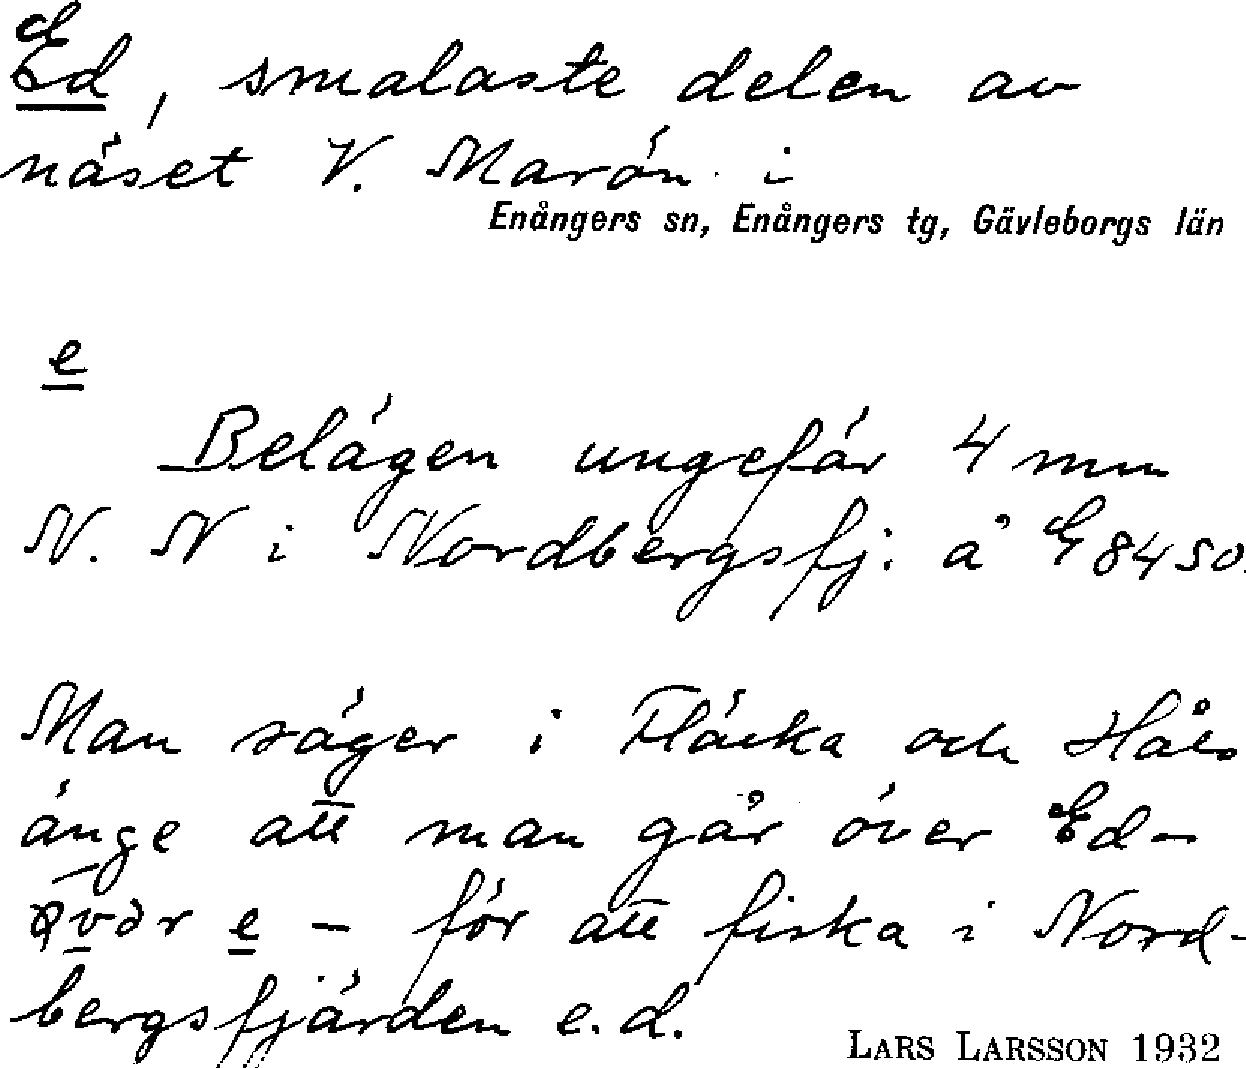 Ed, smalaste delen av
näset V. Marön i
Enångers sn, Enångers tg, Gävleborgs län
e
Belägen ungefär 4 mm
N. N i Nordbergsfj. å G 8450.
Man säger i Fläcka och Håls
änge att man går över Ed-
e – för att fiska i Nord-
bergsfjärden e.d.
LARS LARSSON 1932